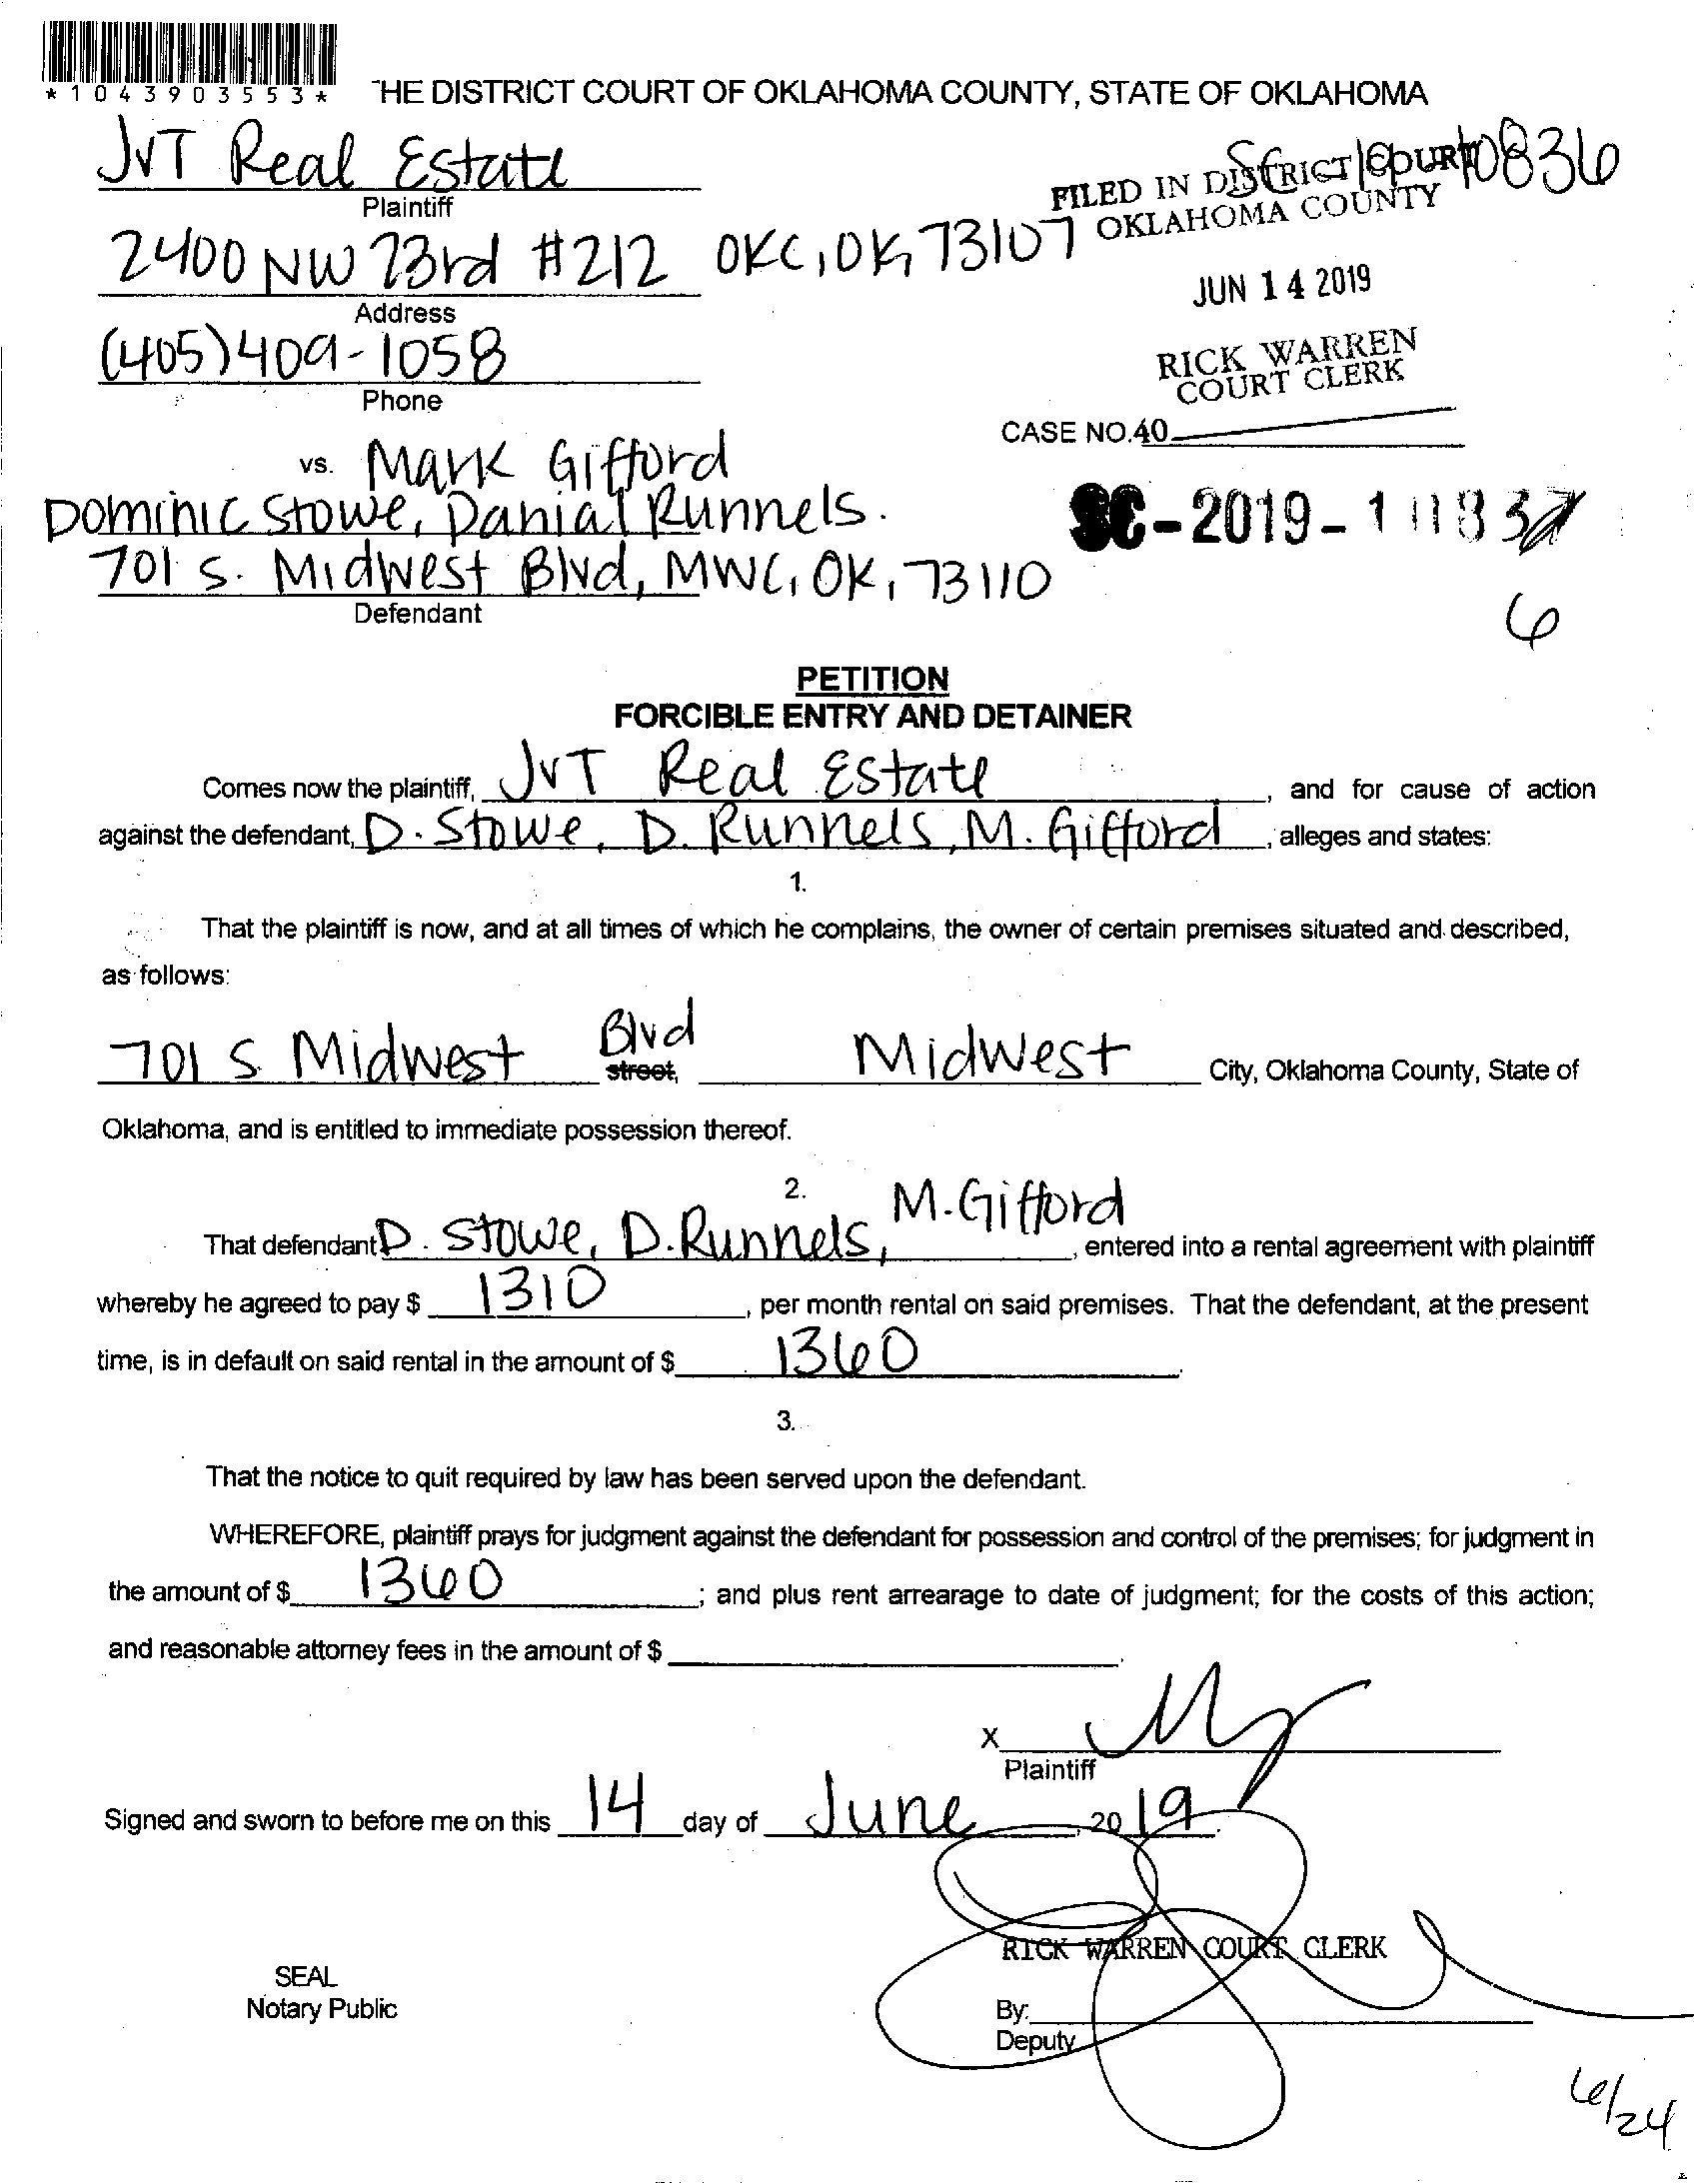 *1043903553*
THE DISTRICT COURT OF OKLAHOMA COUNTY, STATE OF OKLAHOMA
JVT Real Estate
Plaintiff
FILED IN DISTRICT COURT
OKLAHOMA COUNTY
10836
2400 NW 23rd #212 OKC, OK, 73107
Address
JUN 14 2019
(405)409-1058
Phone
RICK WARREN
COURT CLERK
CASE NO.40
vs. Mark Gifford
Dominic Stowe, Danial Runnels.
SC-2019-
701 S. Midwest Blvd, MWC, OK, 73110
Defendant
6
PETITION
FORCIBLE ENTRY AND DETAINER
Comes now the plaintiff, JVT Real Estate, and for cause of action
against the defendant, D. Stowe, D. Runnels, M. Gifford, alleges and states:
1.
That the plaintiff is now, and at all times of which he complains, the owner of certain premises situated and described,
as follows:
701 S Midwest Blvd street, Midwest City, Oklahoma County, State of
Oklahoma, and is entitled to immediate possession thereof.
2.
That defendant D. Stowe, D. Runnels, M. Gifford, entered into a rental agreement with plaintiff
whereby he agreed to pay $ 1310, per month rental on said premises. That the defendant, at the present
time, is in default on said rental in the amount of $ 1360.
3.
That the notice to quit required by law has been served upon the defendant.
WHEREFORE, plaintiff prays for judgment against the defendant for possession and control of the premises; for judgment in
the amount of $ 1360; and plus rent arrearage to date of judgment; for the costs of this action;
and reasonable attorney fees in the amount of $
X
Plaintiff
Signed and sworn to before me on this 14 day of June, 2019.
RICK WARREN COURT CLERK
SEAL
Notary Public
By:
Deputy
6/24